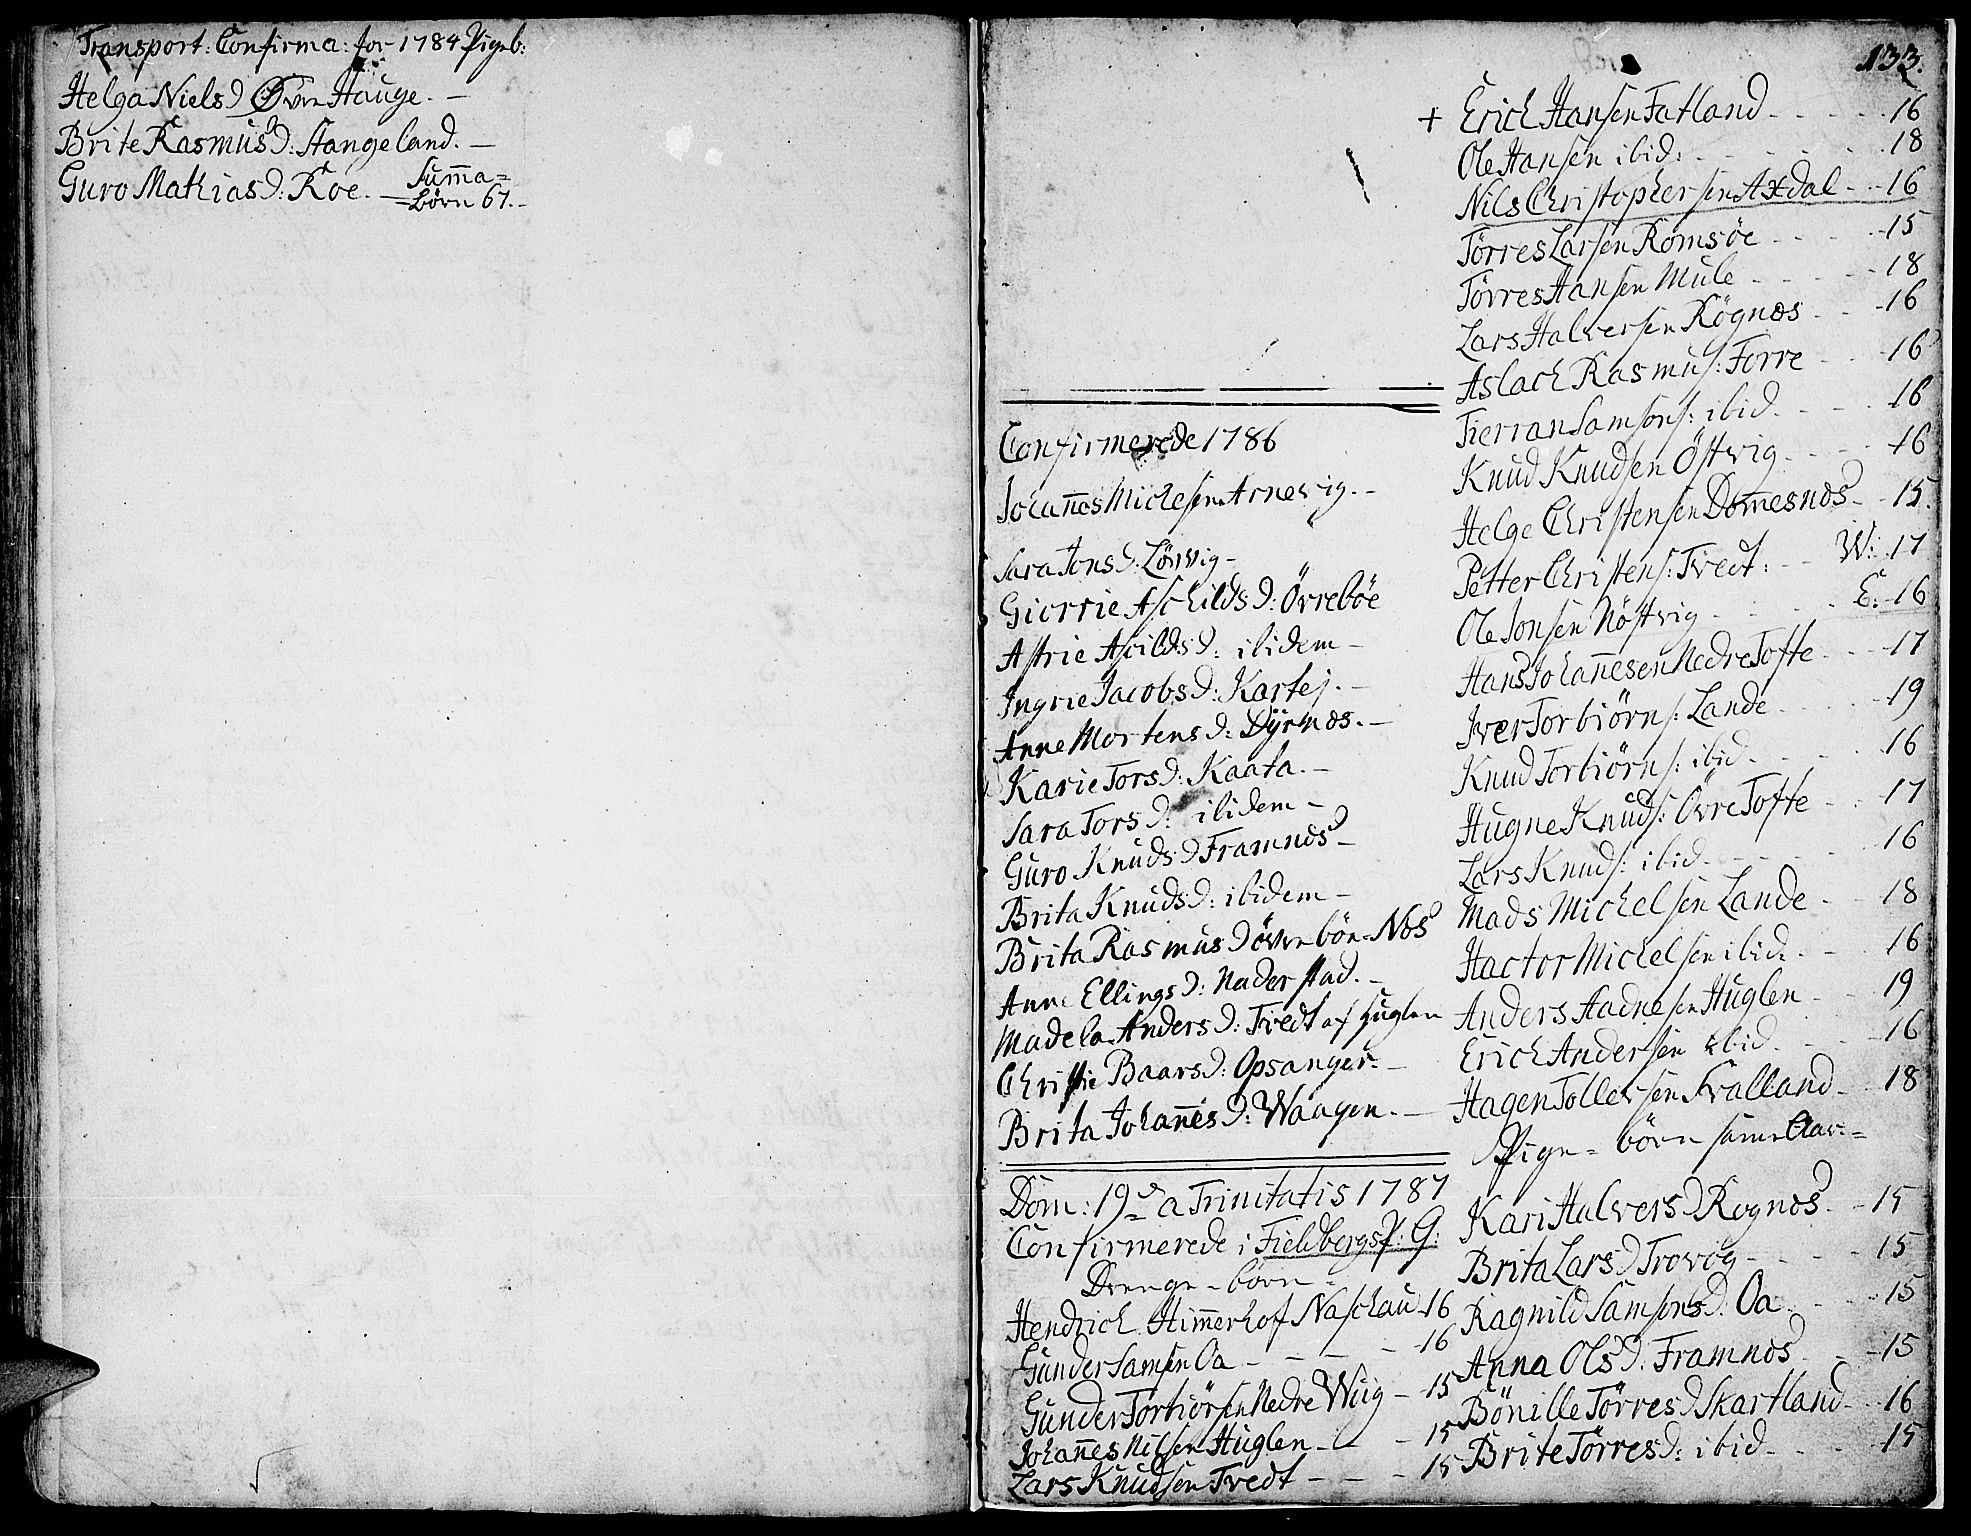 Transport: Confirma: for 1784 Pigeb:
Helga Nielsd Øvre Hauge. —
Brite Rasmusd: Stangeland. —
Guro Mathiasd: Roe. — Sum̄a=
=börn 67.-
133.
Confirmerede 1786
Johan̄es Michelsen Arnevig. -
Sara Jonsd: Lörvig -
Giorrie Aschildsd: Övreböe
Astrie Ascildsd: ibidem -
Ingrie Jacobsd: Kartej. -
Anne Mortensd: Dyrnæs. -
Karie Torsd: Kaata. -
Sara Torsd: ibidem -
Guro Knudsd Framnæs -
Brita Knudsd: ibidem -
Brita Rasmusd övrebön Næs
Anne Ellingsd: Naderstad. -
Madela Andersd: Tvedt af Huglen
Christie Baarsd: Opsanger. -
Brita Johan̄esd: Waagen. -
Dom: 19de a Trinitatis 1787
Confirmerede i Fieldbergs P: G:
Drenge-börn -
Hendrich Him̄erhof Naschau 16
Gunder Samsen Oa - - - 16
Gunder Torbiörsen Nedre Wiig - 15
Johan̄es Nilsen Huglen - - 15
Lars Knudsen Tvedt - - - 15
+ Erich Hansen Fatland - - - 16
Ole Hansen ibid: - - - 18
Nils Christophersen Axdal - - 16
Törres Larsen Romsöe - - - 15
Törres Hansen Mule - - - 18
Lars Halversen Rögnæs - - 16
Aslach Rasmus: Forre - - 16
Tierran Samsons: ibid. - - - 16
Knud Knudsen Östvig - - - 16
Helge Christensen Dom̄esnæs - - 15.
Petter Christens: Tvedt: - - W: 17
Ole Jonsen Nöstvig - - - E: 16
Hans Johan̄esen Nedre Tofte - - 17
Iver Torbiörns: Lande - - - 19
Knud Torbiörns: ibid. - - - 16
Hugne Knuds: Övre Tofte - - 17
Lars Knuds: ibid - - - 16
Mads Michelsen Lande - - 18
Hactor Michelsen ibid: - - 16
Anders Aadnesen Huglen - - 19
Erich Andersen ibid. - - - 16
Hagen Tollevsen Svalland - - 18
Pige-börn samme Aar: =
Kari Halversd Rognæs. - 15
Brita Larsd Trovog - - - 15
Ragnild Samsonsd: Oa - - - 15
Anna Olsd: Framnæs - - 15
Bönille Törresd Skartland - - 16
Brite Törresd: ibid - - - 15